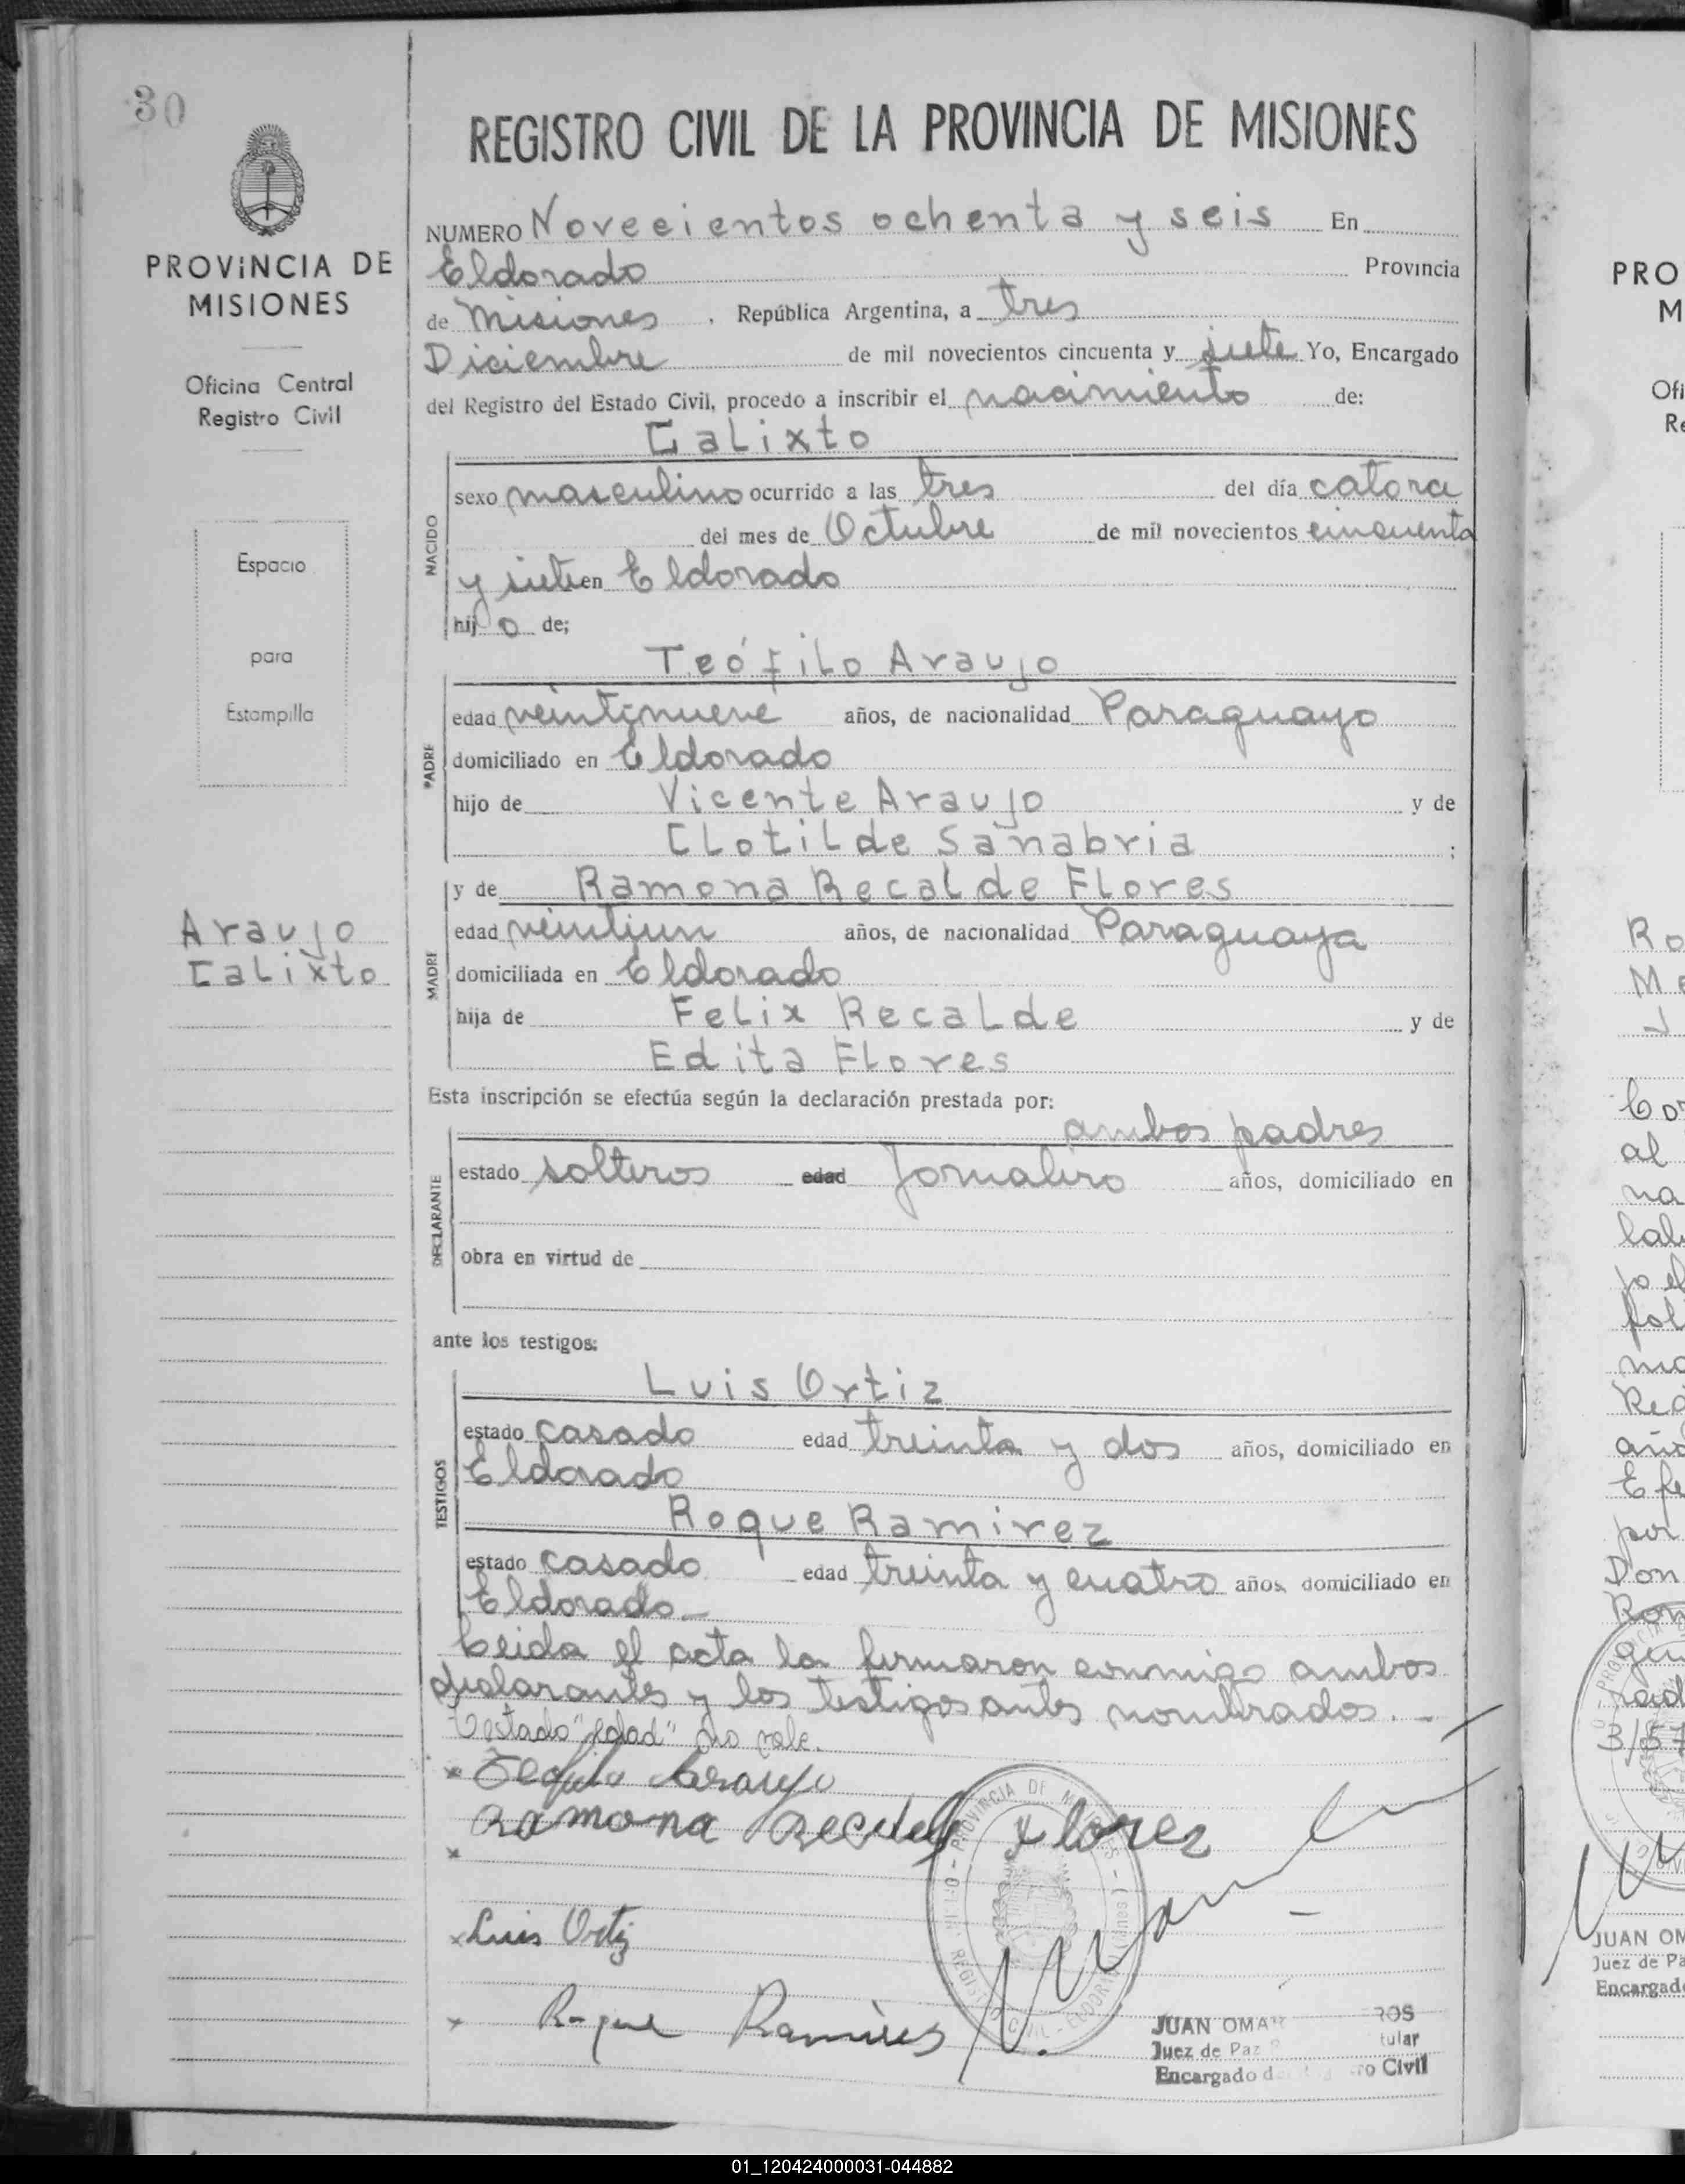 30
PROVINCIA DE
MISIONES
Oficina Central
Registro Civil
Espacio
para
Estampilla
Araujo
Calixto
REGISTRO CIVIL DE LA PROVINCIA DE MISIONES
NUMERO Novecientos ochenta y seis En
Eldorado Provincia
de Misiones, República Argentina, a tres
Diciembre de mil novecientos cincuenta y siete Yo, Encargado
del Registro del Estado Civil, procedo a inscribir el nacimiento de:
Calixto
NACIDO
sexo masculino ocurrido a las tres del día catorce
del mes de Octubre de mil novecientos cincuenta
y siete en Eldorado
hijo de;
Teófilo Araujo
PADRE
edad veintinueve años, de nacionalidad Paraguayo
domiciliado en Eldorado
hijo de Vicente Araujo y de
Clotilde Sanabria ;
y de Ramona Recalde Flores
MADRE
edad veintiun años, de nacionalidad Paraguaya
domiciliada en Eldorado
hija de Felix Recalde y de
Edita Flores
Esta inscripción se efectúa según la declaración prestada por:
ambos padres
DECLARANTE
estado solteros edad Jornalero años, domiciliado en
obra en virtud de
ante los testigos:
Luis Ortiz
TESTIGOS
estado casado edad treinta y dos años, domiciliado en
Eldorado
Roque Ramirez
estado casado edad treinta y cuatro años domiciliado en
Eldorado_
Leida el acta la firmaron conmigo ambos
declarantes y los testigos antes nombrados._
Testado "edad" no vale.
x Teofilo Araujo
Ramona Recalde Flores
x
x Luis Ortiz
x Roque Ramires
PROVINCIA DE MISIONES
REGISTRO CIVIL - ELDORADO
JUAN OMAR ROS
Juez de Paz tular
Encargado d ro Civil
PRO
M
Ofi
Re
Ro
M
al
na
po el
Reg
año
Efe
por
Don
3/57
JUAN OM
Juez de Pa
Encargado
01_120424000031-044882